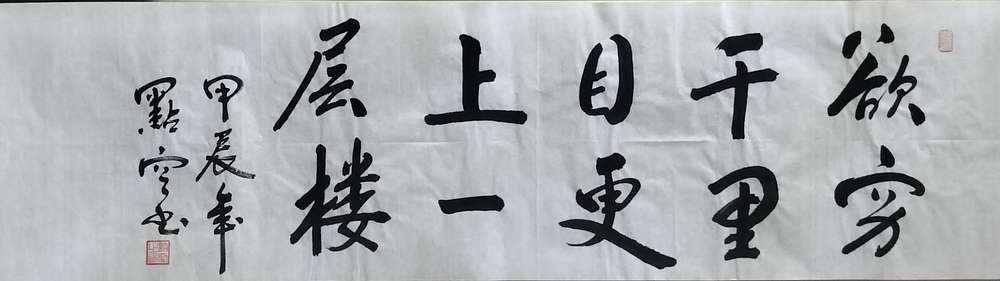 欲穷
千里
目更
上一
层楼
甲辰年
點空书